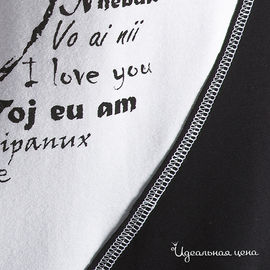 Vo ai nii
I love you
Toj eu am
ipanux
e
Идеальная цена